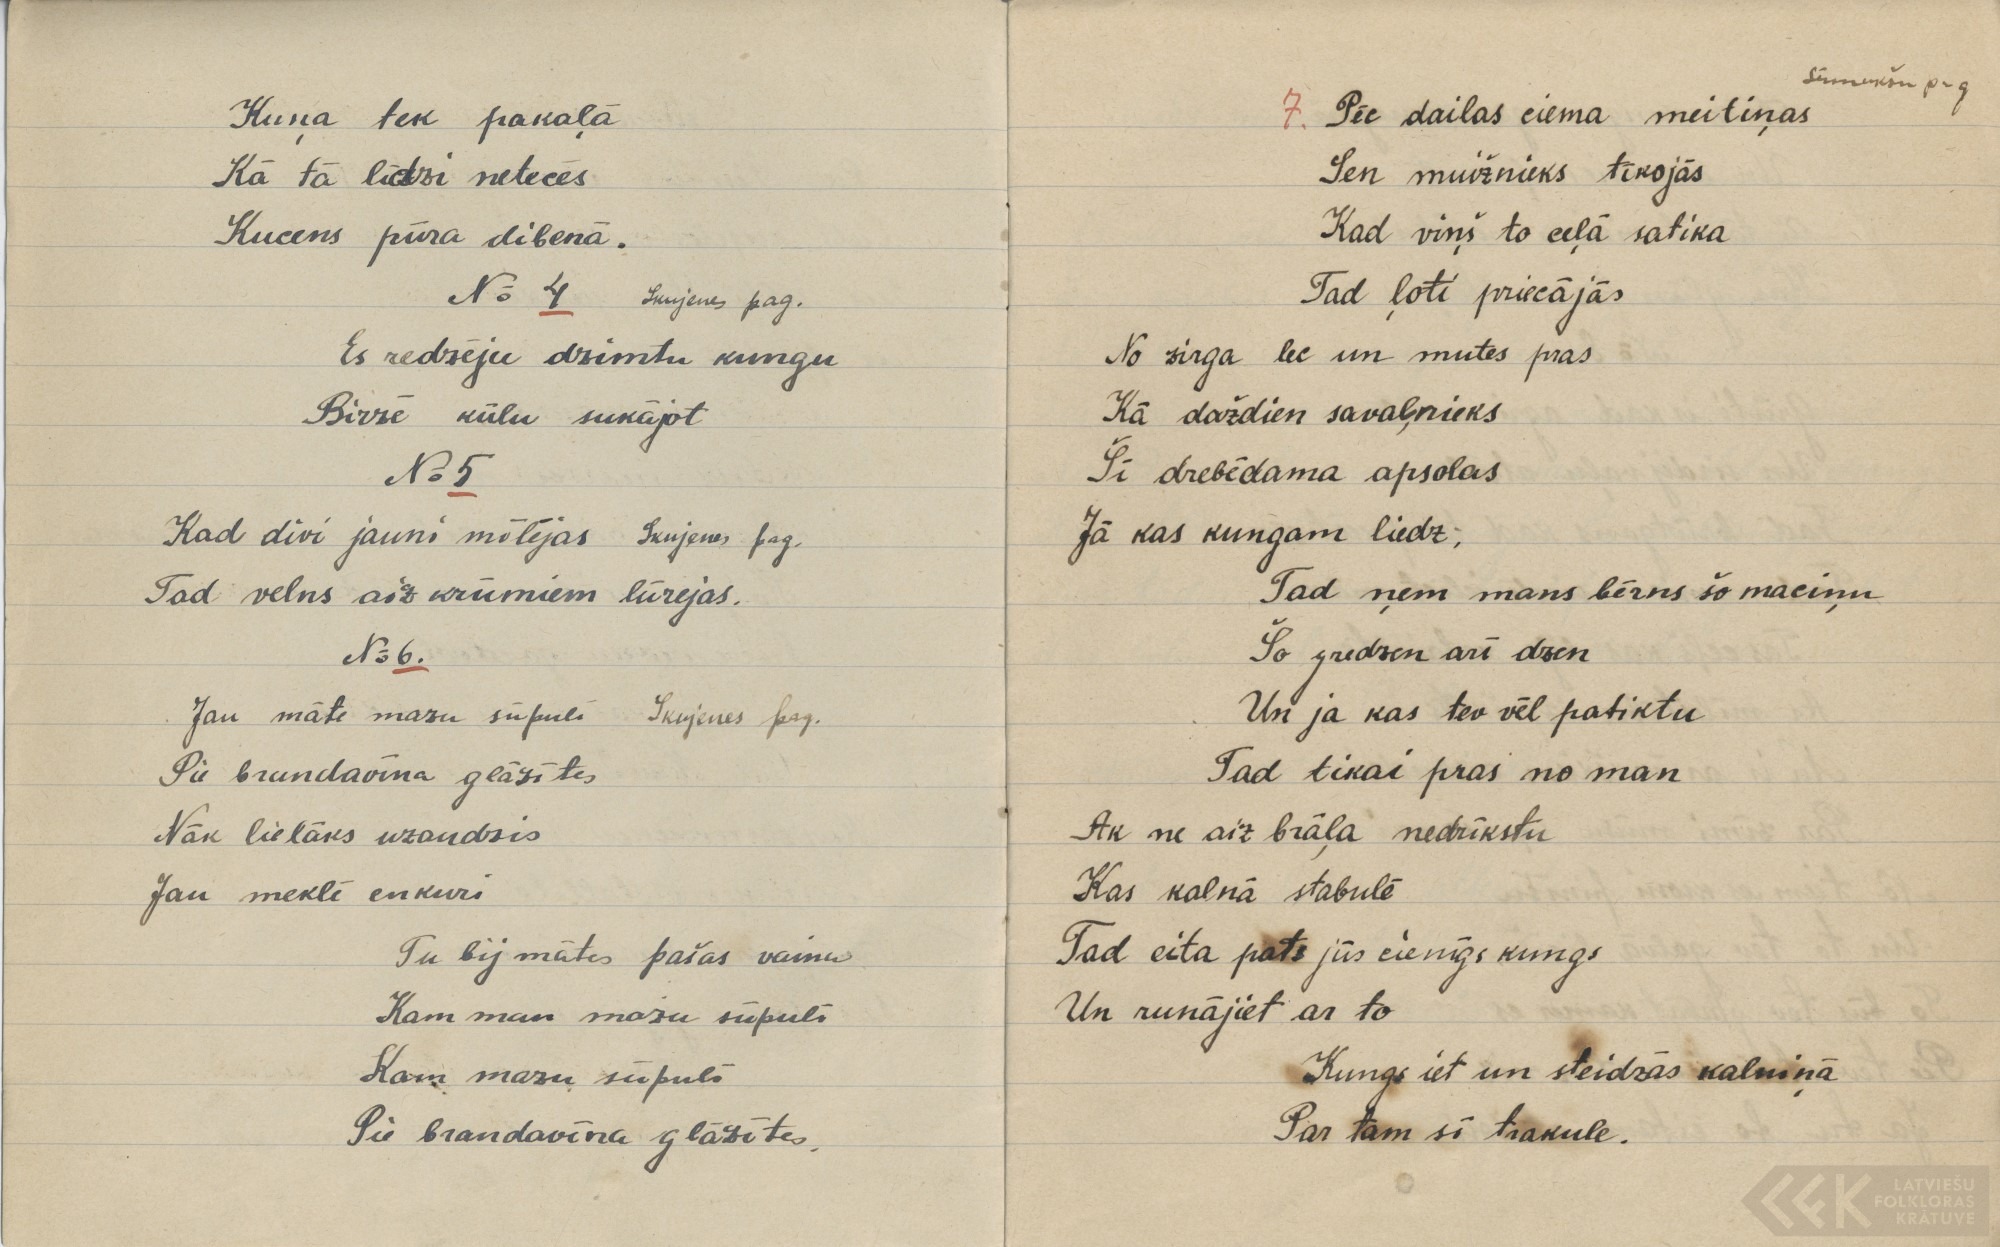 Kuņa tek pakaļā
Kā tā līdzi netecēs
Kucens pūra dibenā.
No 4 Skujenes pag.
Es redzēju dzimtu kungu
Birzē kūlu sukājot
No 5
Kad divi jauni mīlējas Skujenes pag.
Tad velns aiz krūmiem lūrejas.
No 6.
Jau māte mazu šūpulī Skujenes pag.
Pie brandavīna glāzītes
Nāk lielāks uzaudzis
Jau meklē enkuri
Tu bij mātes pašas vaina
Kam man mazu šūpulī
Kam mazu šūpulī
Pie brandavīna glāzītes.
pag
7. Pēc dailas ciema meitiņas
Sen muižnieks tīkojās
Kad viņš to ceļā satika
Tad ļoti priecājās
No zirga lec un mutes pras
Kā daždien savaļnieks
Šī drebēdama apsolas
Jā kas kungam liedz;
Tad ņem mans bērns šo maciņu
Šo gredzen arī dzen
Un ja kas tev vēl patiktu
Tad tikai pras no man
Ak ne aiz brāļa nedrīkstu
Kas kalnā stabulē
Tad eita pats jūs cienīgs kungs
Un runājiet ar to
Kungs iet un steidzās kalniņā
Par tam sī trakule.
LATVIEŠU
FOLKLORAS
KRĀTUVE